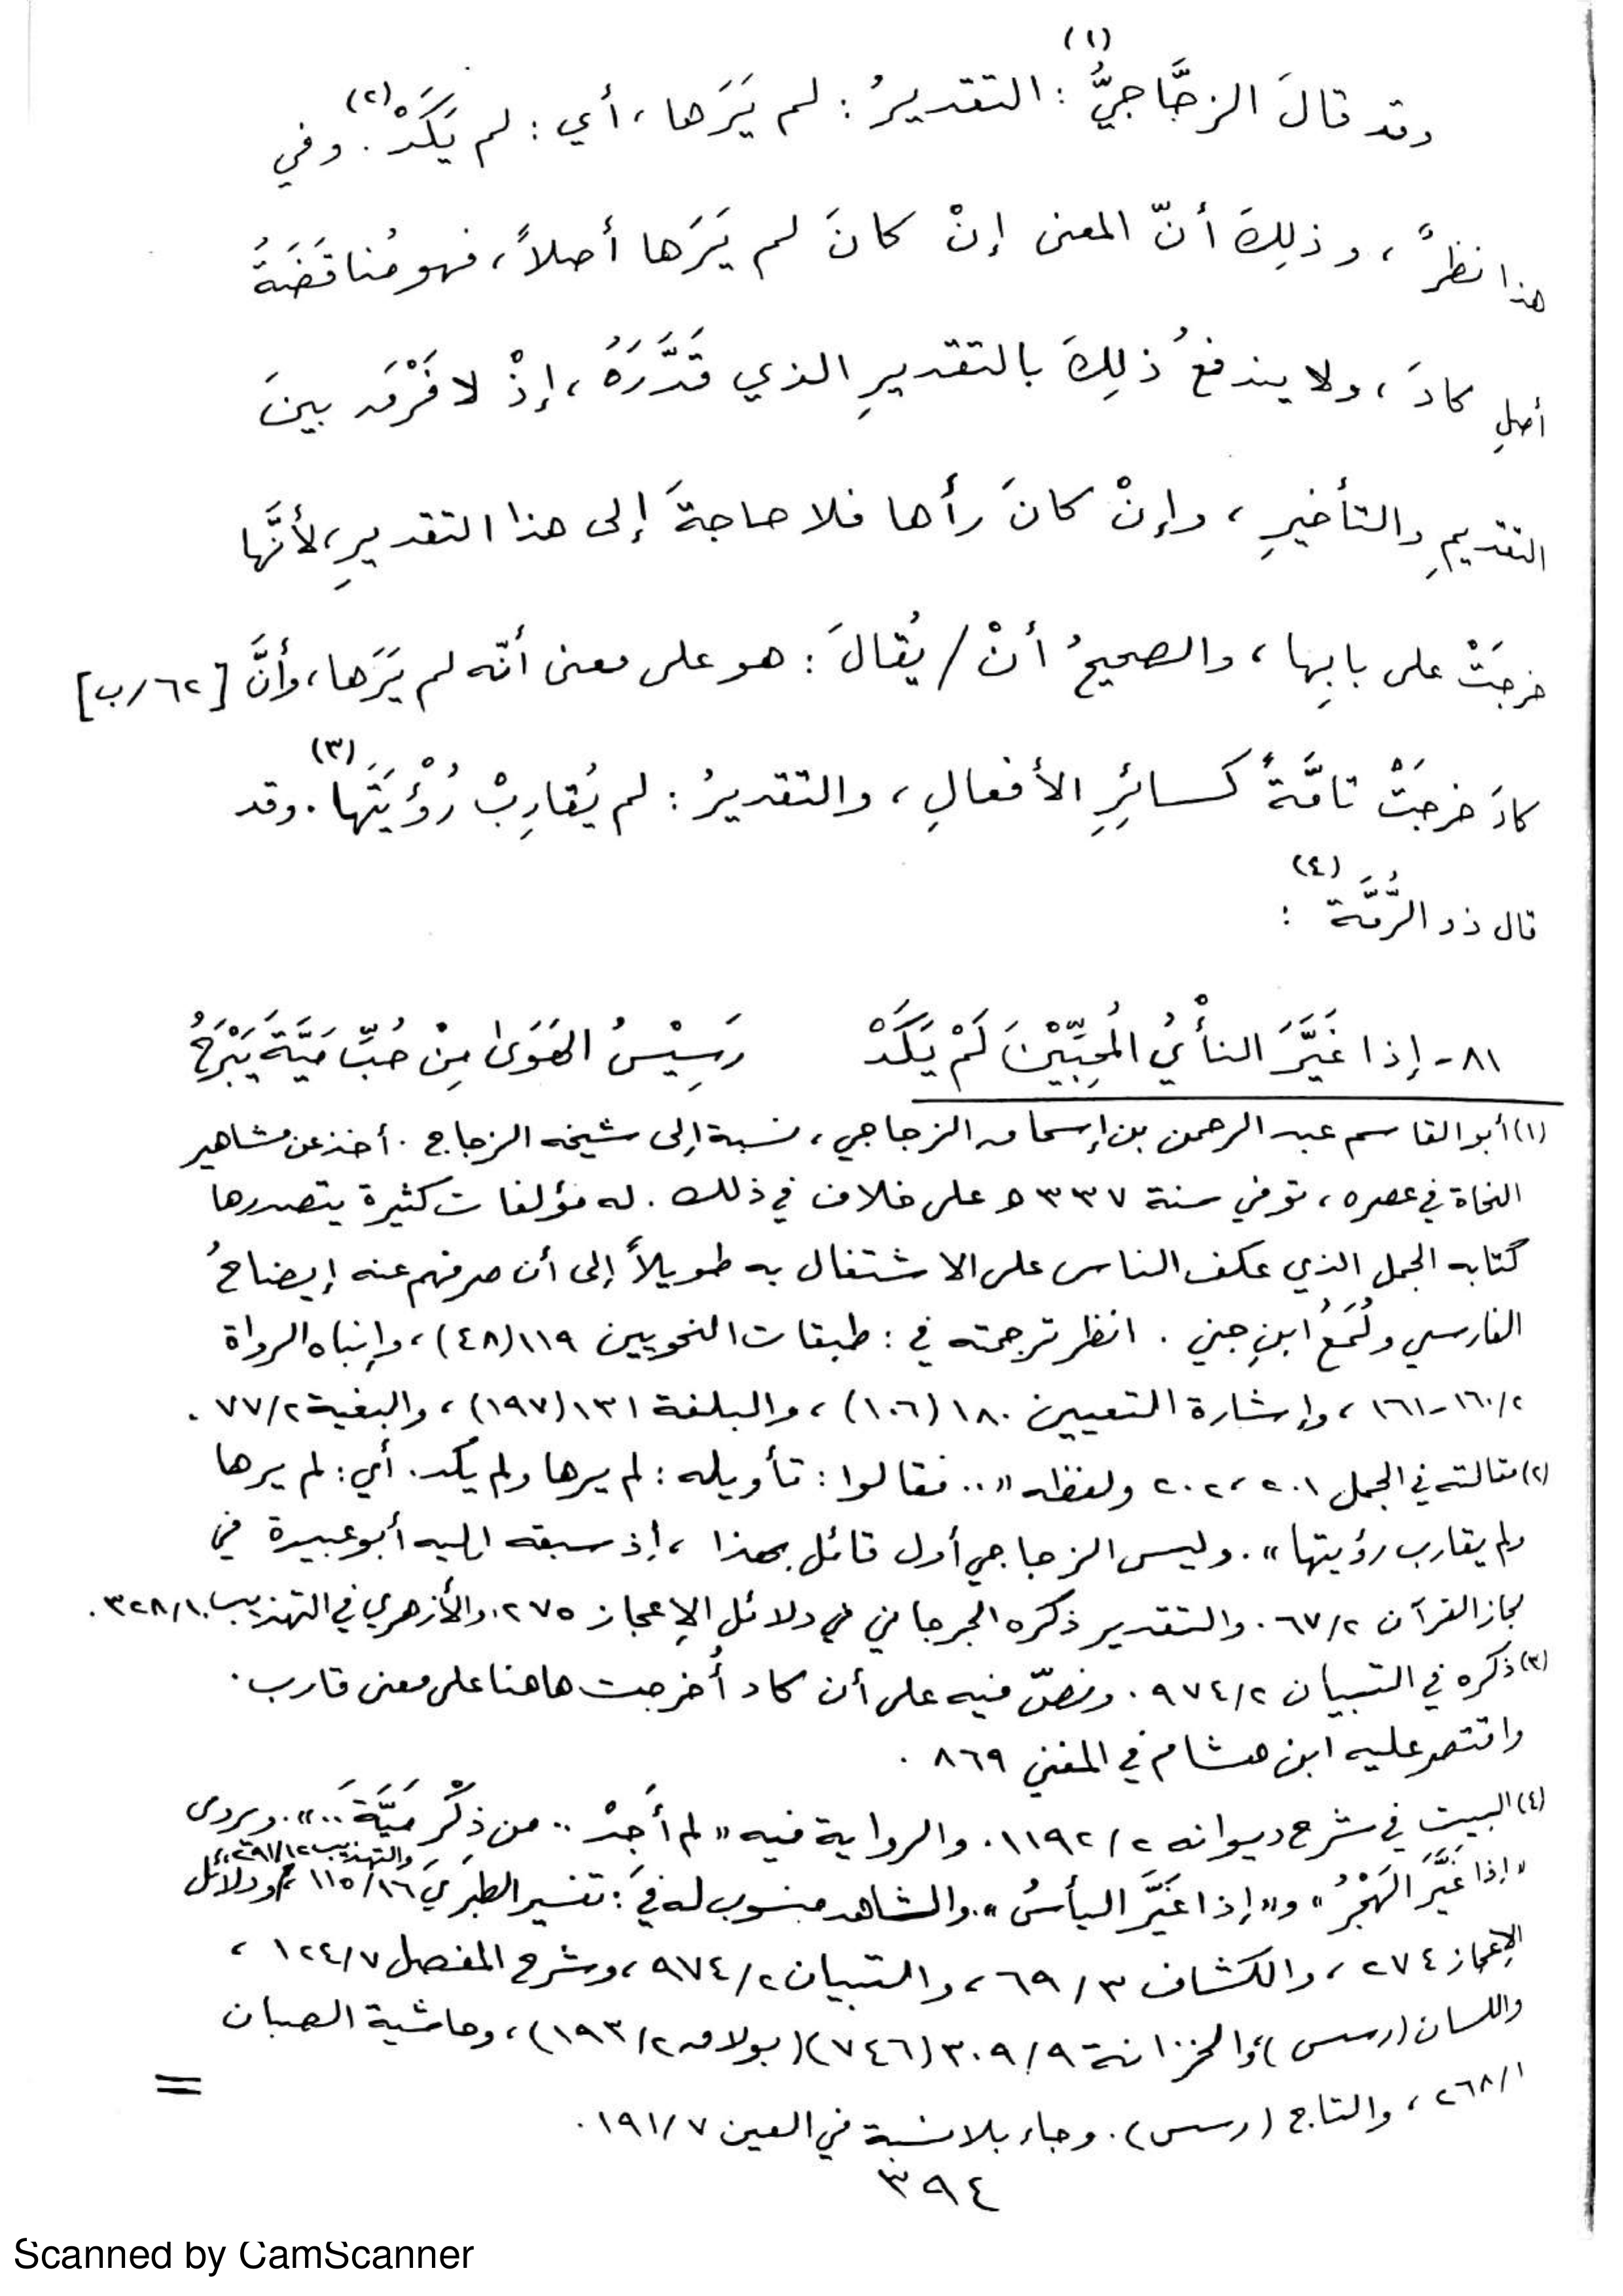 (١)
وقد قالَ الزجَّاجيُّ : التقديرُ : لم يَرَها ، أي : لم يَكَدْ (٢). وفي
هذا نظرٌ ، وذلِكَ أنّ المعنى إنْ كانَ لم يَرَها أصلاً ، فهو مُناقَضَةُ
أصلِ كادَ ، ولا يندفعُ ذلِكَ بالتقديرِ الذي قَدَّرَهُ ، إذْ لا فَرْقَ بينَ
التقديمِ والتأخيرِ ، وإنْ كانَ رأها فلا حاجةَ إلى هذا التقديرِ ، لأنَّها
خرجَتْ على بابِها ، والصحيحُ أنْ / يُقالَ : هو على معنى أنّه لم يَرَها ، وأنَّ [٦٢/ب]
كادَ خرجَتْ تامَّةً كسائرِ الأفعالِ ، والتقديرُ : لم يُقارِبْ رُؤْيَتَها (٣). وقد
قال ذو الرُّمَّة (٤) :
٨١- إذا غَيَّرَ النأْيُ المُحِبِّيْنَ لَمْ يَكَدْ رَسِيْسُ الهَوَىٰ مِنْ حُبِّ مَيَّةَ يَبْرَحُ
(١) أبو القاسم عبد الرحمن بن إسحاق الزجاجي ، نسبة إلى شيخه الزجاج . أخذ عن مشاهير
النحاة في عصره ، توفي سنة ٣٣٧ ه على خلاف في ذلك . له مؤلفات كثيرة يتصدرها
كتابه الجمل الذي عكف الناس على الاشتغال به طويلاً إلى أن صرفهم عنه إيضاحُ
الفارسي ولُمَعُ ابنِ جني . انظر ترجمته في : طبقات النحويين ١١٩ (٤٨) ، وإنباه الرواة
٢/١٦٠-١٦١ ، وإشارة التعيين ١٨٠ (١٠٦) ، والبلغة ١٣١ (١٩٧) ، والبغية ٢/٧٧ .
(٢) مقالته في الجمل ٢٠١ ، ٢٠٢ ولفظه « .. فقالوا : تأويله : لم يرها ولم يكد . أي : لم يرها
ولم يقارب رؤيتها » . وليس الزجاجي أول قائل بهذا ، إذ سبقه إليه أبو عبيدة في
مجاز القرآن ٢/٦٧ . والتقدير ذكره الجرجاني في دلائل الإعجاز ٢٧٥ . والأزهري في التهذيب ١٠/٣٢٨ .
(٣) ذكره في التبيان ٢/٩٧٤ . ونصّ فيه على أن كاد أُخرجت هاهنا على معنى قارب .
واقتصر عليه ابن هشام في المغني ٨٦٩ .
(٤) البيت في شرح ديوانه ٢/١١٩٢ . والرواية فيه « لم أَجِدْ .. من ذِكْرِ مَيَّةَ .. » . ويروى
« إذا غَيَّرَ الهَجْرُ » و« إذا غَيَّرَ اليأسُ » . والشاهد منسوب له في : تفسير الطبري ١٦/١١٥ ، والتهذيب ١٢/٢٩١ ، ودلائل
الإعجاز ٢٧٤ ، والكشاف ٣/٦٩ ، والتبيان ٢/٩٧٤ ، وشرح المفصل ٧/١٢٤ ،
واللسان (رسس) ، والخزانة ٩/٣٠٩ (٧٤٦) (بولاق ٢/١٩٣) ، وحاشية الصبان
١/٢٦٨ ، والتاج (رسس) . وجاء بلا نسبة في العين ٧/١٩١ .
=
٣٩٤
Scanned by CamScanner